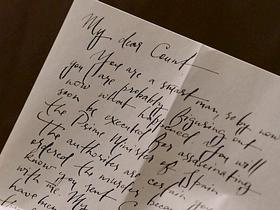 My dear Count
You are a smart man, so by now
you are probably figuring out
now what happened. You will
soon be executed for assassinating
the Prime Minister of Spain
The authorites are certain you
ordered the murder because
know you sent C
with the My
have men